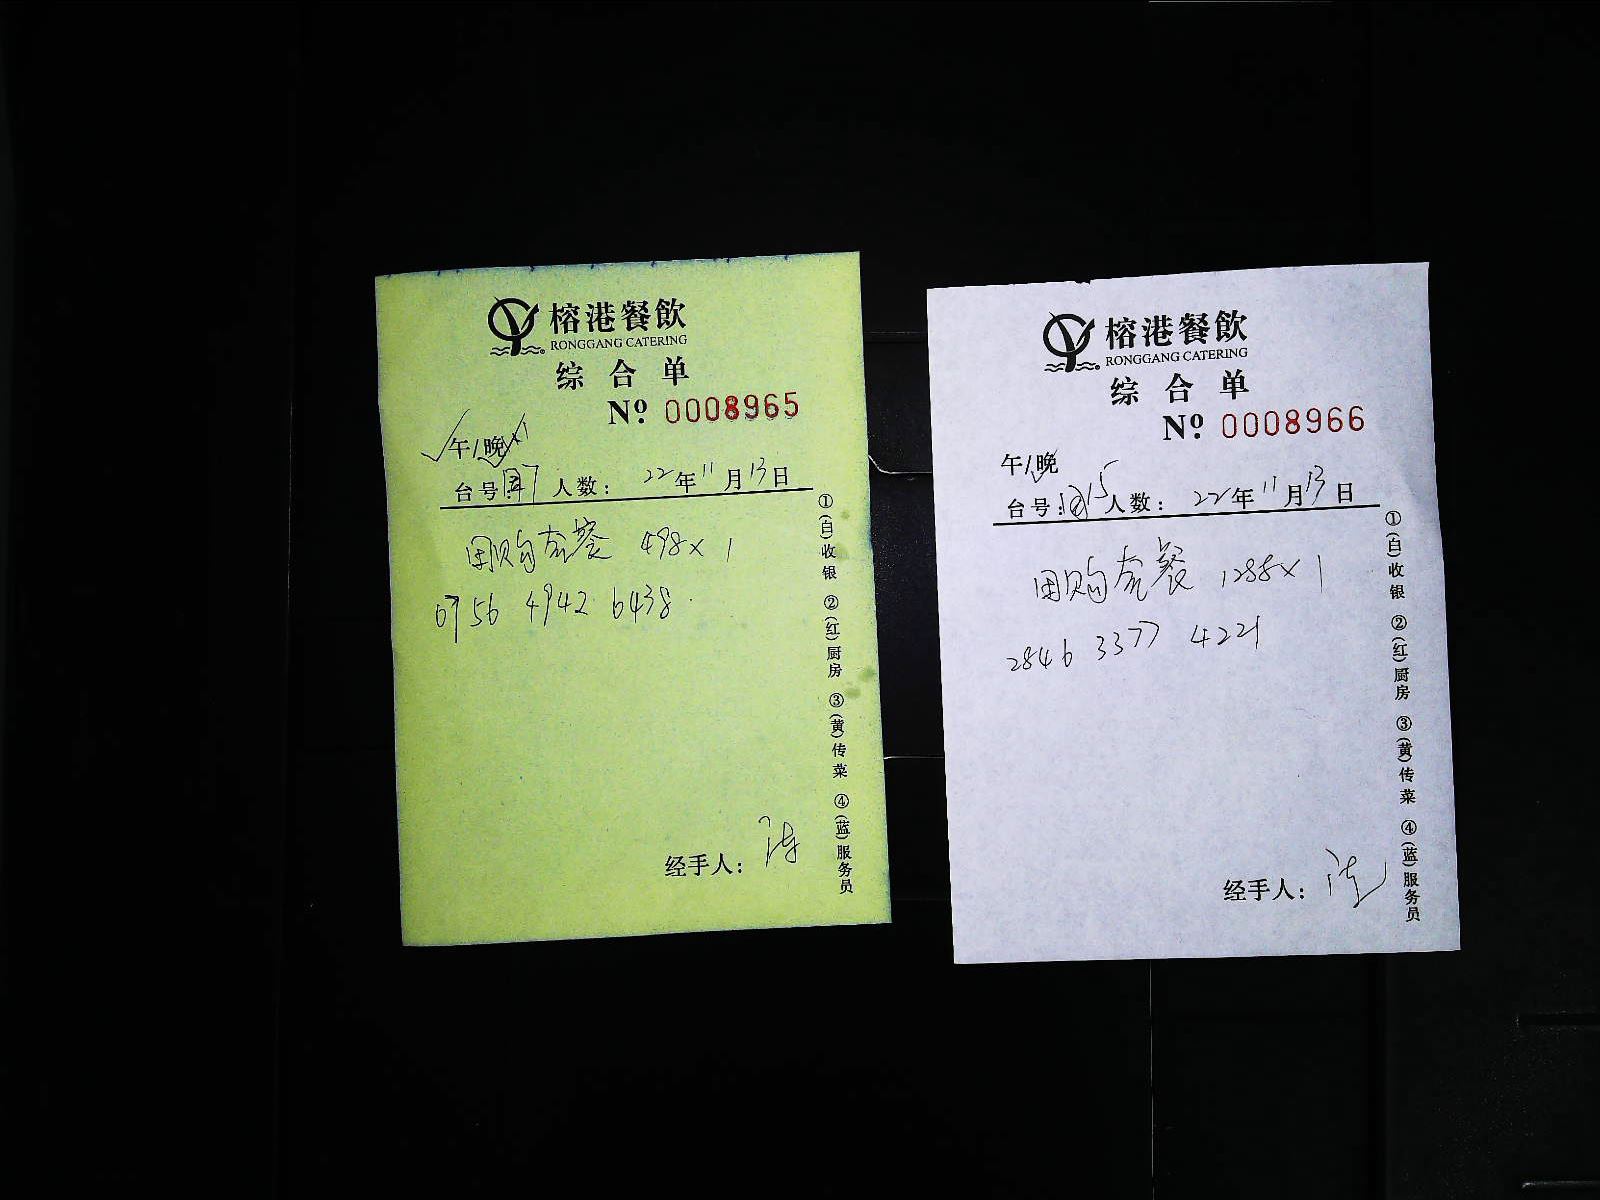 榕港餐飲
RONGGANG CATERING
综合单
Nº 0008965
午/晚
台号: 人数: 22年11月13日
团购套餐 498×1
0756 4942 6438
经手人: 陈
①(白)收银 ②(红)厨房 ③(黄)传菜 ④(蓝)服务员
榕港餐飲
RONGGANG CATERING
综合单
Nº 0008966
午/晚
台号: 15 人数: 22年11月13日
团购套餐 1288×1
2846 3377 4221
经手人:
①(白)收银 ②(红)厨房 ③(黄)传菜 ④(蓝)服务员